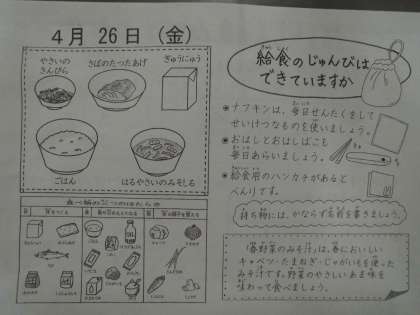 4月 26日 (金)
やさいの
きんぴら
さばのたつたあげ
ぎゅうにゅう
ごはん
はるやさいのみそしる
給食のじゅんびは
できていますか
ナフキンは、毎日せんたくをして
せいけつなものを使いましょう。
おはしとおはしばこも
毎日あらいましょう。
給食用のハンカチがあると
べんりです。
持ち物には、かならず名前を書きましょう。
「春野菜のみそ汁」は、春においしい
キャベツ・たまねぎ・じゃがいもを使った
みそ汁です。野菜のやさしいあま味を
味わって食べましょう。